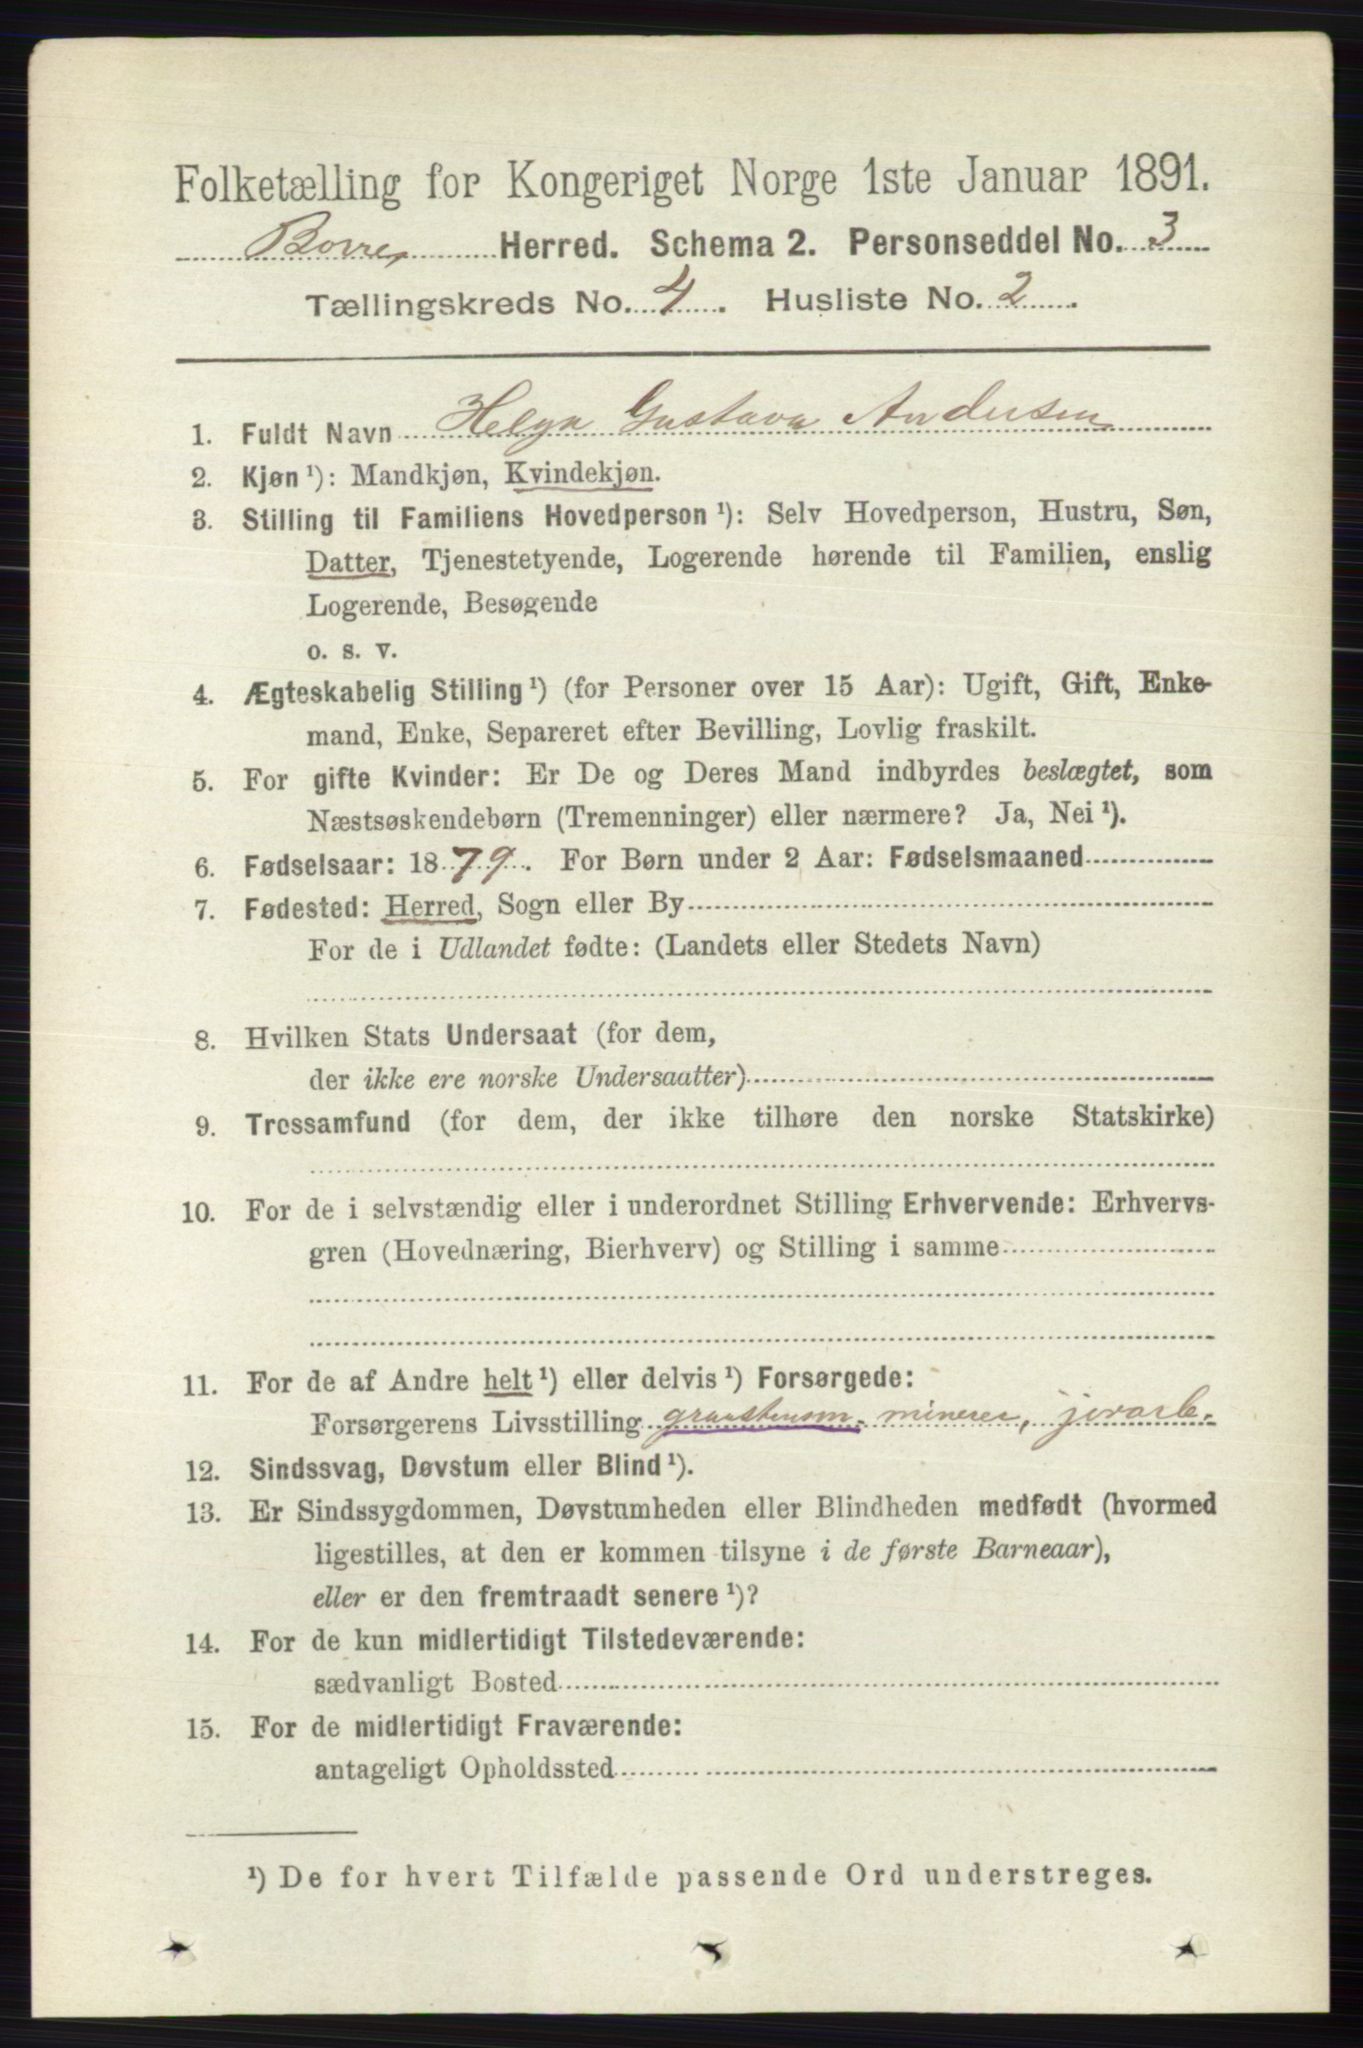 Folketælling for Kongeriget Norge 1ste Januar 1891.
Borre Herred. Schema 2. Personseddel No. 3
Tællingskreds No. 4. Husliste No. 2.
1. Fuldt Navn Helga Gustava Andersen
2. Kjøn ¹): Mandkjøn, Kvindekjøn.
3. Stilling til Familiens Hovedperson ¹): Selv Hovedperson, Hustru, Søn,
Datter, Tjenestetyende, Logerende hørende til Familien, enslig
Logerende, Besøgende
o. s. v.
4. Ægteskabelig Stilling ¹) (for Personer over 15 Aar): Ugift, Gift, Enke-
mand, Enke, Separeret efter Bevilling, Lovlig fraskilt.
5. For gifte Kvinder: Er De og Deres Mand indbyrdes beslægtet, som
Næstsøskendebørn (Tremenninger) eller nærmere? Ja, Nei ¹).
6. Fødselsaar: 1879. For Børn under 2 Aar: Fødselsmaaned
7. Fødested: Herred, Sogn eller By
For de i Udlandet fødte: (Landets eller Stedets Navn)
8. Hvilken Stats Undersaat (for dem,
der ikke ere norske Undersaatter)
9. Trossamfund (for dem, der ikke tilhøre den norske Statskirke)
10. For de i selvstændig eller i underordnet Stilling Erhvervende: Erhvervs-
gren (Hovednæring, Bierhverv) og Stilling i samme
11. For de af Andre helt ¹) eller delvis ¹) Forsørgede:
Forsørgerens Livsstilling minerer, jorarb.
12. Sindssvag, Døvstum eller Blind ¹).
13. Er Sindssygdommen, Døvstumheden eller Blindheden medfødt (hvormed
ligestilles, at den er kommen tilsyne i de første Barneaar),
eller er den fremtraadt senere ¹)?
14. For de kun midlertidigt Tilstedeværende:
sædvanligt Bosted
15. For de midlertidigt Fraværende:
antageligt Opholdssted
¹) De for hvert Tilfælde passende Ord understreges.